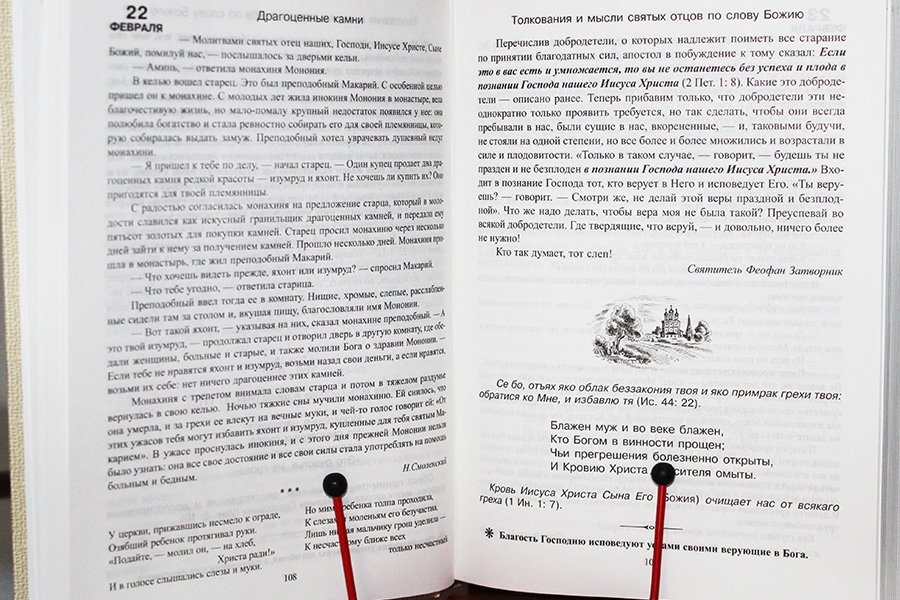 22
ФЕВРАЛЯ
Драгоценные камни
— Молитвами святых отец наших, Господи, Иисусе Христе, Сыне
Божий, помилуй нас, — послышалось за дверьми кельи.
— Аминь, — ответила монахиня Монония.
В келью вошел старец. Это был преподобный Макарий. С особенной целью
пришел он к монахине. С молодых лет жила инокиня Монония в монастыре, вела
благочестивую жизнь, но мало-помалу крупный недостаток появился у нее: она
полюбила богатство и стала ревностно собирать его для своей племянницы, кото-
рую собиралась выдать замуж. Преподобный хотел уврачевать душевный недуг
монахини.
— Я пришел к тебе по делу, — начал старец. — Один купец продает два дра-
гоценных камня редкой красоты — изумруд и яхонт. Не хочешь ли купить их? Они
пригодятся для твоей племянницы.
С радостью согласилась монахиня на предложение старца, который в моло-
дости славился как искусный гранильщик драгоценных камней, и передала ему
пятьсот золотых для покупки камней. Старец просил монахиню через несколько
дней зайти к нему за получением камней. Прошло несколько дней. Монахиня при-
шла в монастырь, где жил преподобный Макарий.
— Что хочешь видеть прежде, яхонт или изумруд? — спросил Макарий.
— Что тебе угодно, — ответила старица.
Преподобный ввел тогда ее в комнату. Нищие, хромые, слепые, расслаблен-
ные сидели там за столом и, вкушая пищу, благословляли имя Мононии.
— Вот такой яхонт, — указывая на них, сказал монахине преподобный. — А
это твой изумруд, — продолжал старец и отворил дверь в другую комнату, где обе-
дали женщины, больные и старые, и также молили Бога о здравии Мононии. —
Если тебе не нравятся яхонт и изумруд, возьми назад свои деньги, а если нравятся,
возьми их себе: нет ничего драгоценнее этих камней.
Монахиня с трепетом внимала словам старца и потом в тяжелом раздумье
вернулась в свою келью. Ночью тяжкие сны мучили монахиню. Ей снилось, что
она умерла, и за грехи ее влекут на вечные муки, и чей-то голос говорит ей: «От
этих ужасов тебя могут избавить яхонт и изумруд, купленные для тебя святым Ма-
карием». В ужасе проснулась инокиня, и с этого дня прежней Мононии нельзя
было узнать: она все свое достояние и все свои силы стала употреблять на помощь
больным и бедным.
Н. Смоленский
* * *
У церкви, прижавшись несмело к ограде,
Озябший ребенок протягивал руки.
«Подайте, — молил он, — на хлеб,
Христа ради!»
И в голосе слышались слезы и муки.
Но мимо ребенка толпа проходила,
К слезам и моленьям его безучастна,
Лишь нищая мальчику грош уделила —
К несчастному ближе всех
только несчастный.
108
Толкования и мысли святых отцов по слову Божию
Перечислив добродетели, о которых надлежит поиметь все старание
по принятии благодатных сил, апостол в побуждение к тому сказал: Если
это в вас есть и умножается, то вы не останетесь без успеха и плода в
познании Господа нашего Иисуса Христа (2 Пет. 1: 8). Какие это доброде-
тели — описано ранее. Теперь прибавим только, что добродетели эти не-
однократно только проявить требуется, но так сделать, чтобы они всегда
пребывали в нас, были сущи в нас, вкорененные, — и, таковыми будучи,
не стояли на одной степени, но все более и более множились и возрастали в
силе и плодовитости. «Только в таком случае, — говорит, — будешь ты не
празден и не безплоден в познании Господа нашего Иисуса Христа.» Вхо-
дит в познание Господа тот, кто верует в Него и исповедует Его. «Ты веру-
ешь? — говорит. — Смотри же, не делай этой веры праздной и безплод-
ной». Что же надо делать, чтобы вера моя не была такой? Преуспевай во
всякой добродетели. Где твердящие, что веруй, — и довольно, ничего более
не нужно!
Кто так думает, тот слеп!
Святитель Феофан Затворник
Се бо, отъях яко облак беззакония твоя и яко примрак грехи твоя:
обратися ко Мне, и избавлю тя (Ис. 44: 22).
Блажен муж и во веке блажен,
Кто Богом в винности прощен;
Чьи прегрешения болезненно открыты,
И Кровию Христа сителя омыты.
Кровь Иисуса Христа Сына Его (Божия) очищает нас от всякаго
греха (1 Ин. 1: 7).
* Благость Господню исповедуют устами своими верующие в Бога.